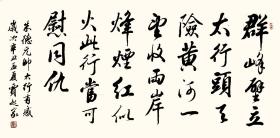 群峰壁立
太行頭天
險黃河一
望收兩岸
烽煙紅似
火此行當可
慰同仇
朱德元帥太行有感
歲次辛丑孟夏